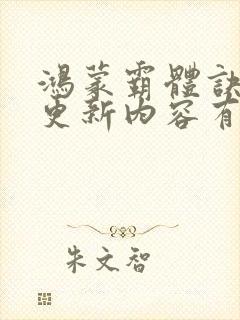 鴻蒙霸體訣
更新内容有
朱文智